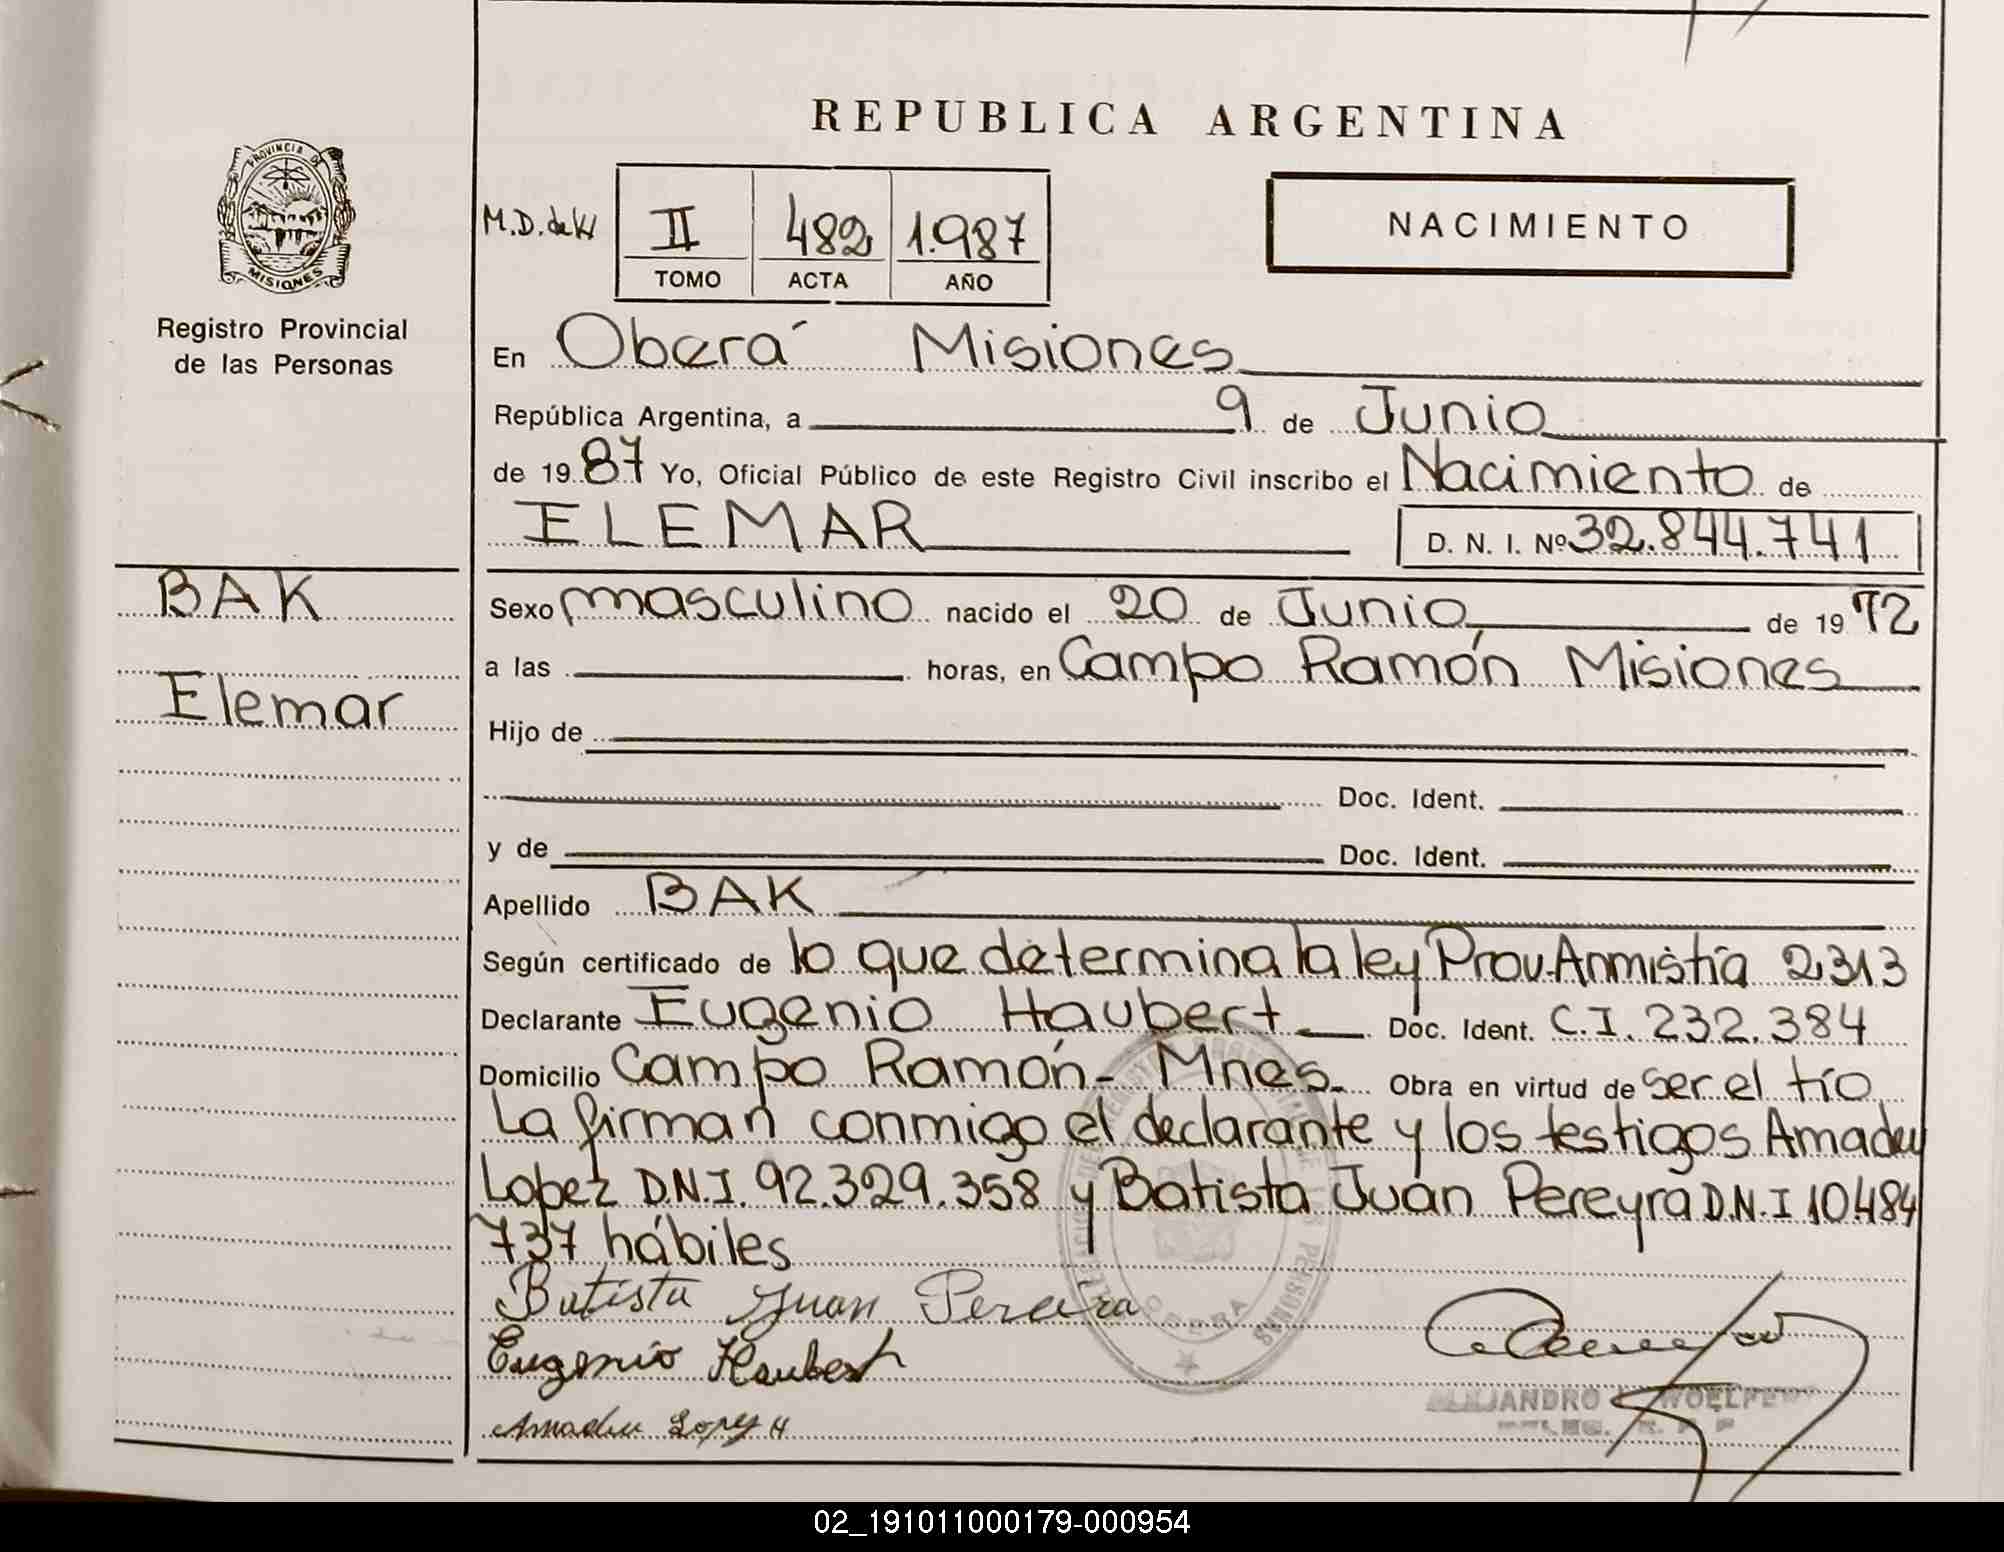 REPUBLICA ARGENTINA
PROVINCIA DE
MISIONES
Registro Provincial
de las Personas
BAK
Elemar
II 482 1.987
TOMO ACTA AÑO
NACIMIENTO
En Oberá Misiones
República Argentina, a 9 de Junio
de 19 87 Yo, Oficial Público de este Registro Civil inscribo el Nacimiento de
ELEMAR D. N. I. Nº 32.844.741
Sexo masculino nacido el 20 de Junio de 19 72
a las horas, en Campo Ramón Misiones
Hijo de
Doc. Ident.
y de Doc. Ident.
Apellido BAK
Según certificado de lo que determina la ley Prov. Anmistía 2.313
Declarante Eugenio Haubert Doc. Ident. C.I. 232.384
Domicilio Campo Ramón - Mnes. Obra en virtud de ser el tío
La firman conmigo el declarante y los testigos Amadeu
Lopez D.N.I. 92.329.358 y Batista Juan Pereyra D.N.I 10484
737 hábiles
Batista Juan Pereira
Eugenio Haubert
Amadeu Lopez
ALEJANDRO
OBERA
02_191011000179-000954